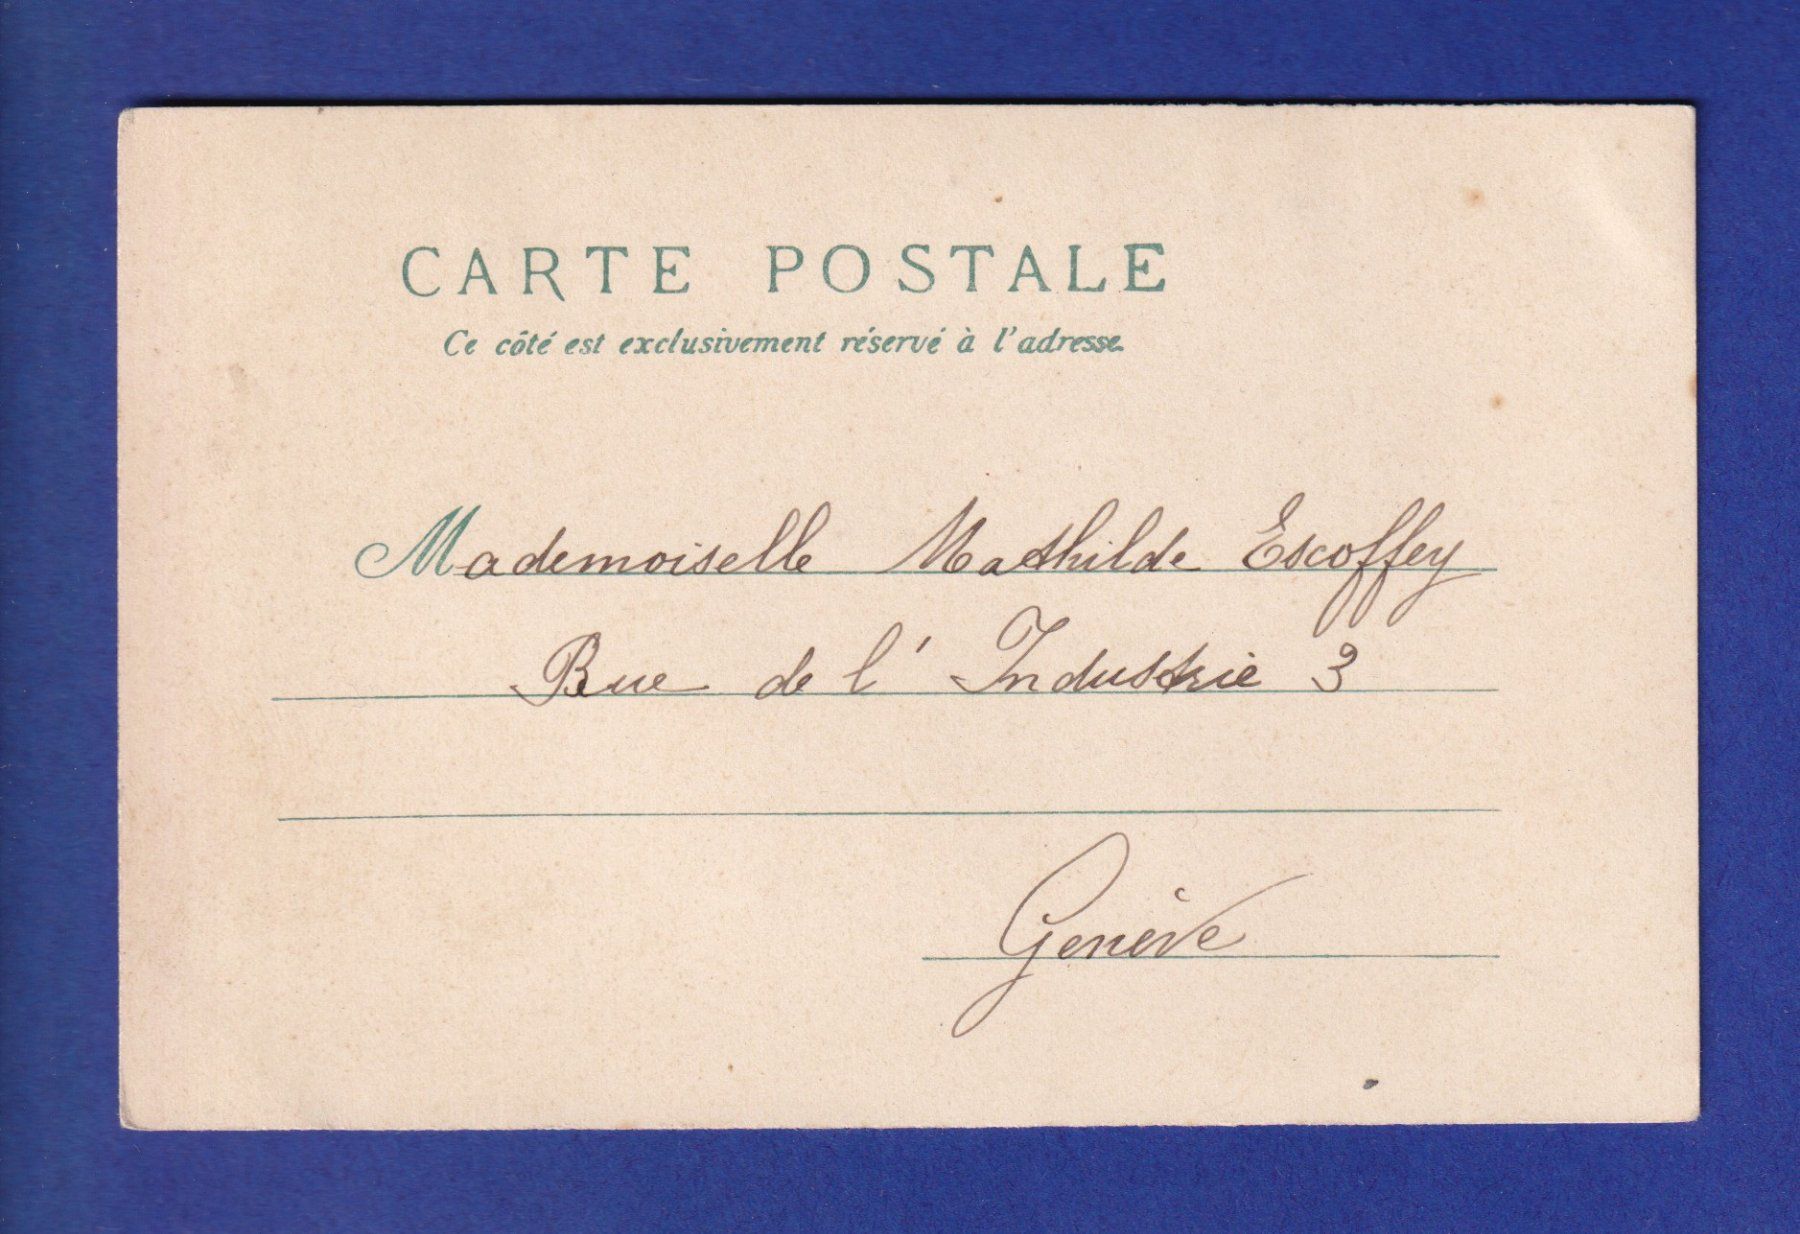 CARTE POSTALE
Ce côté est exclusivement réservé à l'adresse.
Mademoiselle Mathilde Escoffey
Rue de l' Industrie 3
Genève